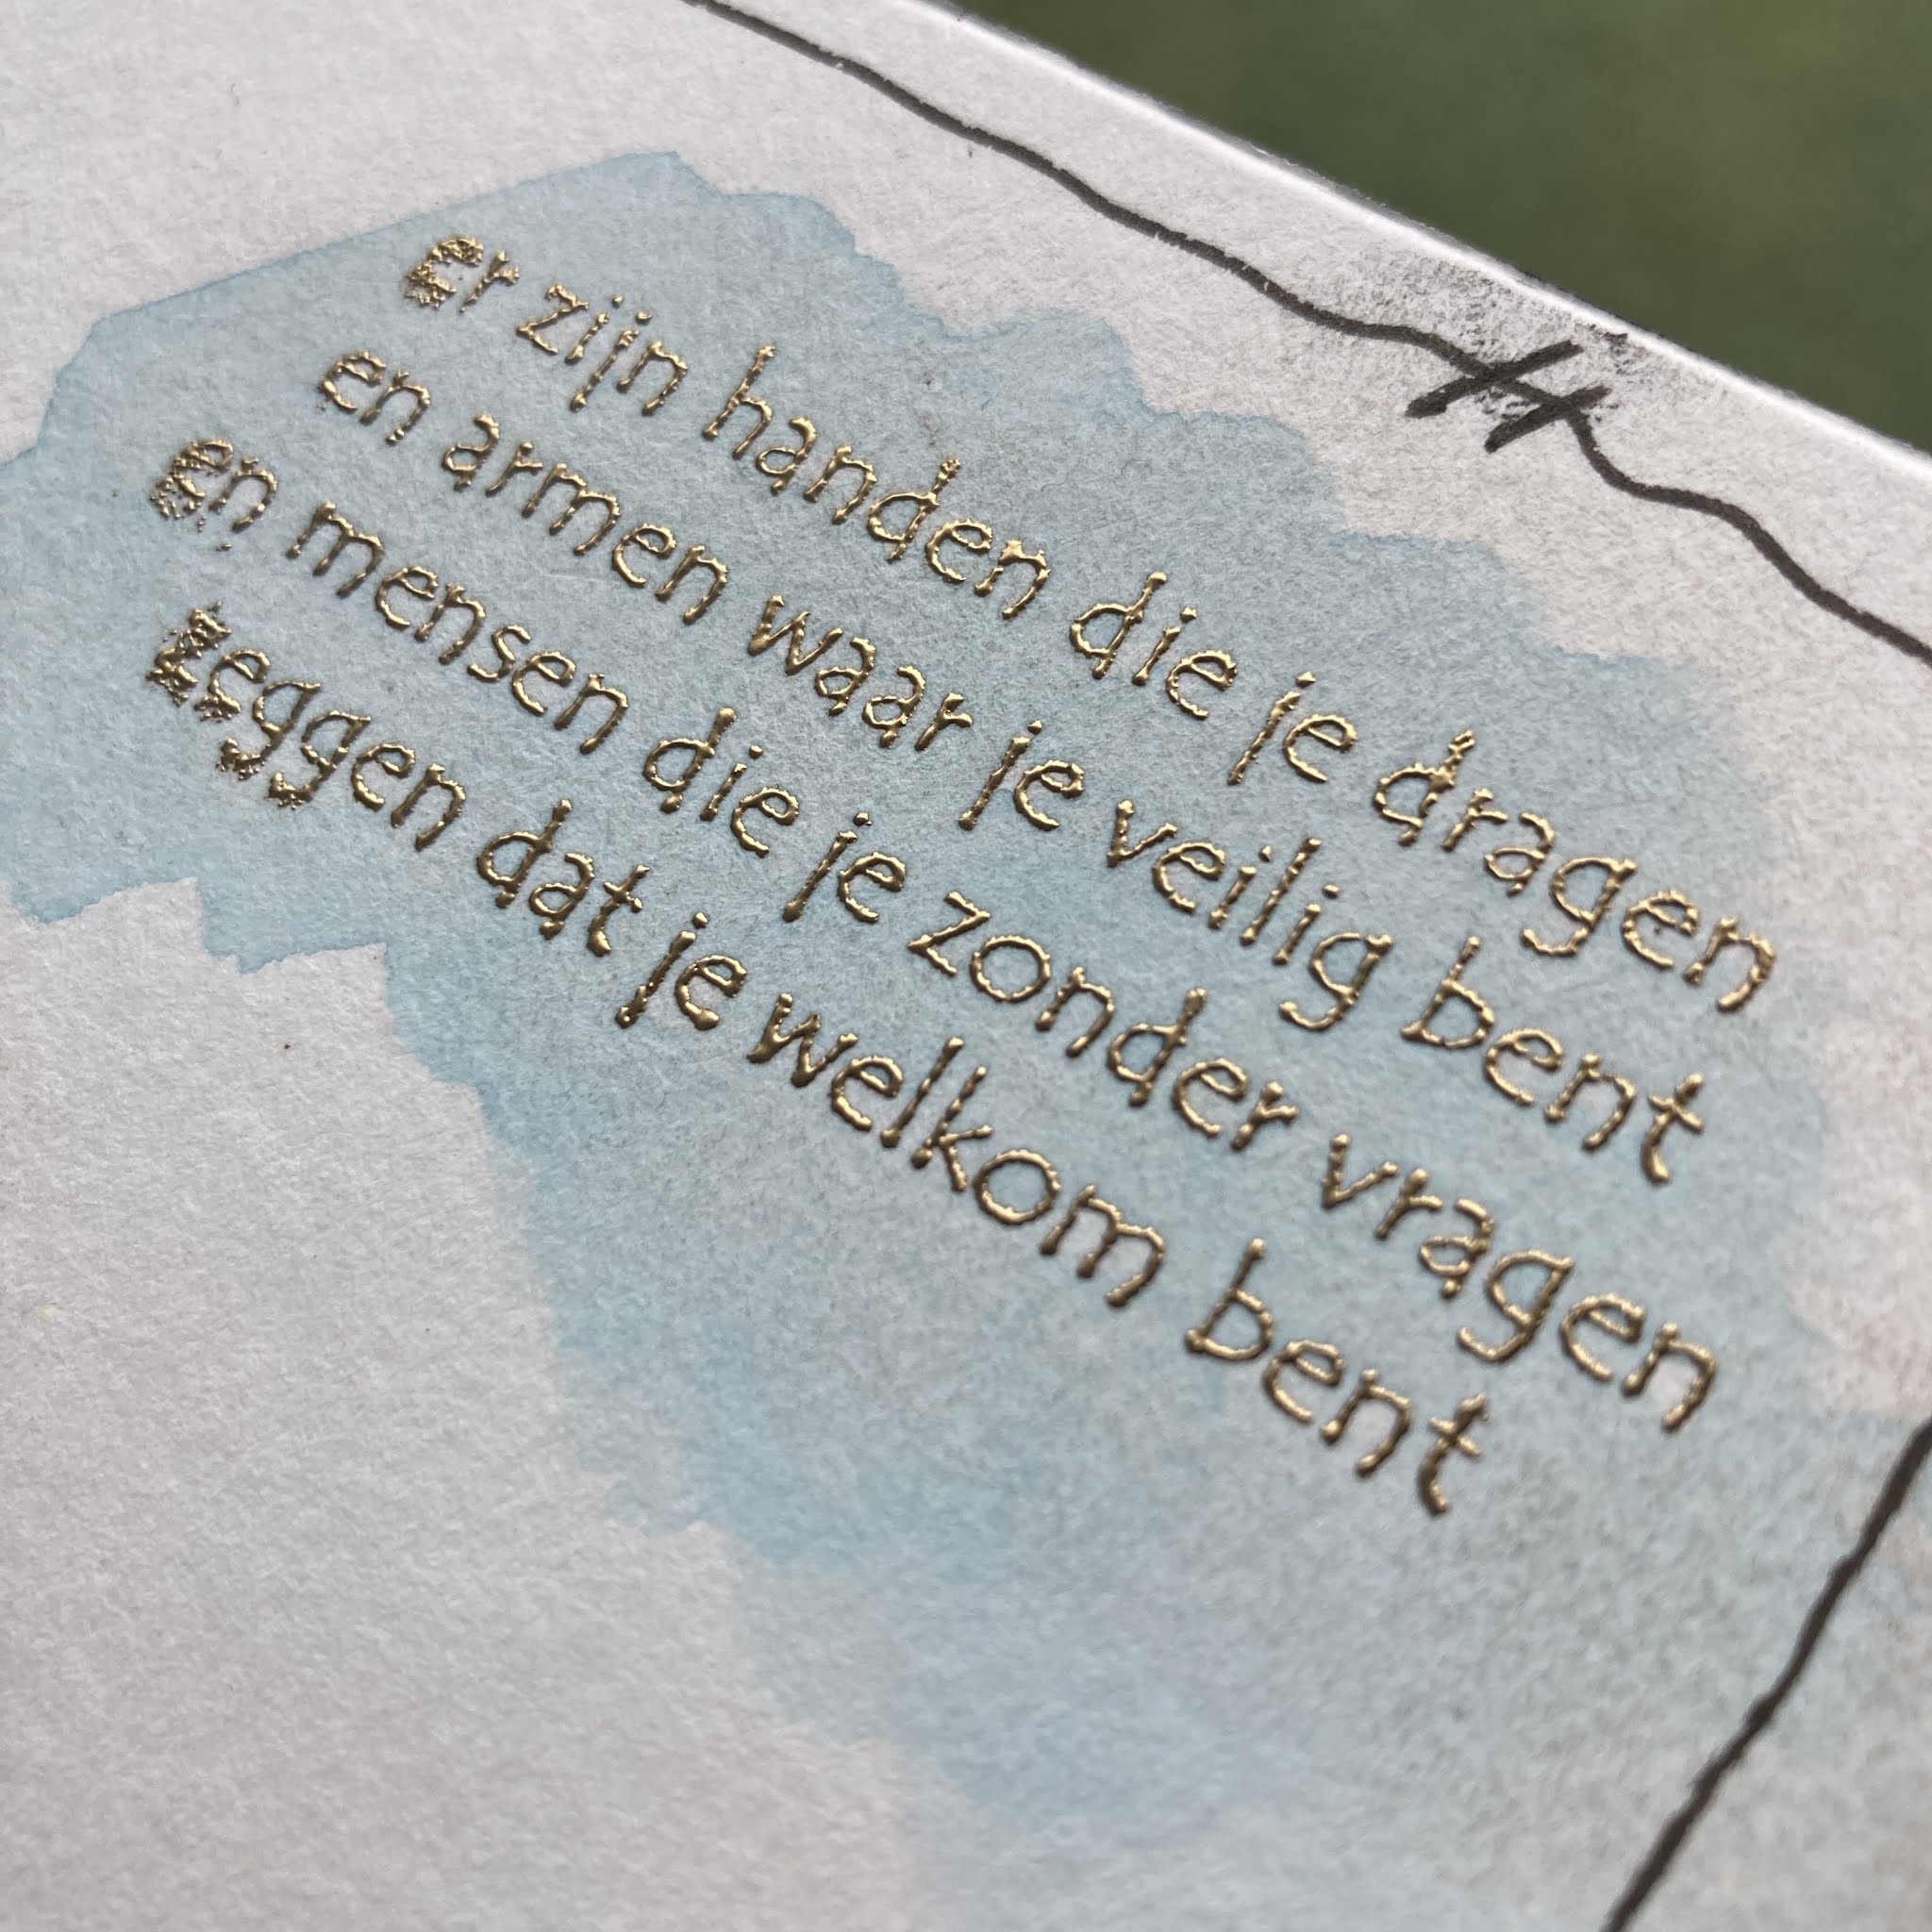 er zijn handen die je dragen
en armen waar je veilig bent
en mensen die je zonder vragen
zeggen dat je welkom bent